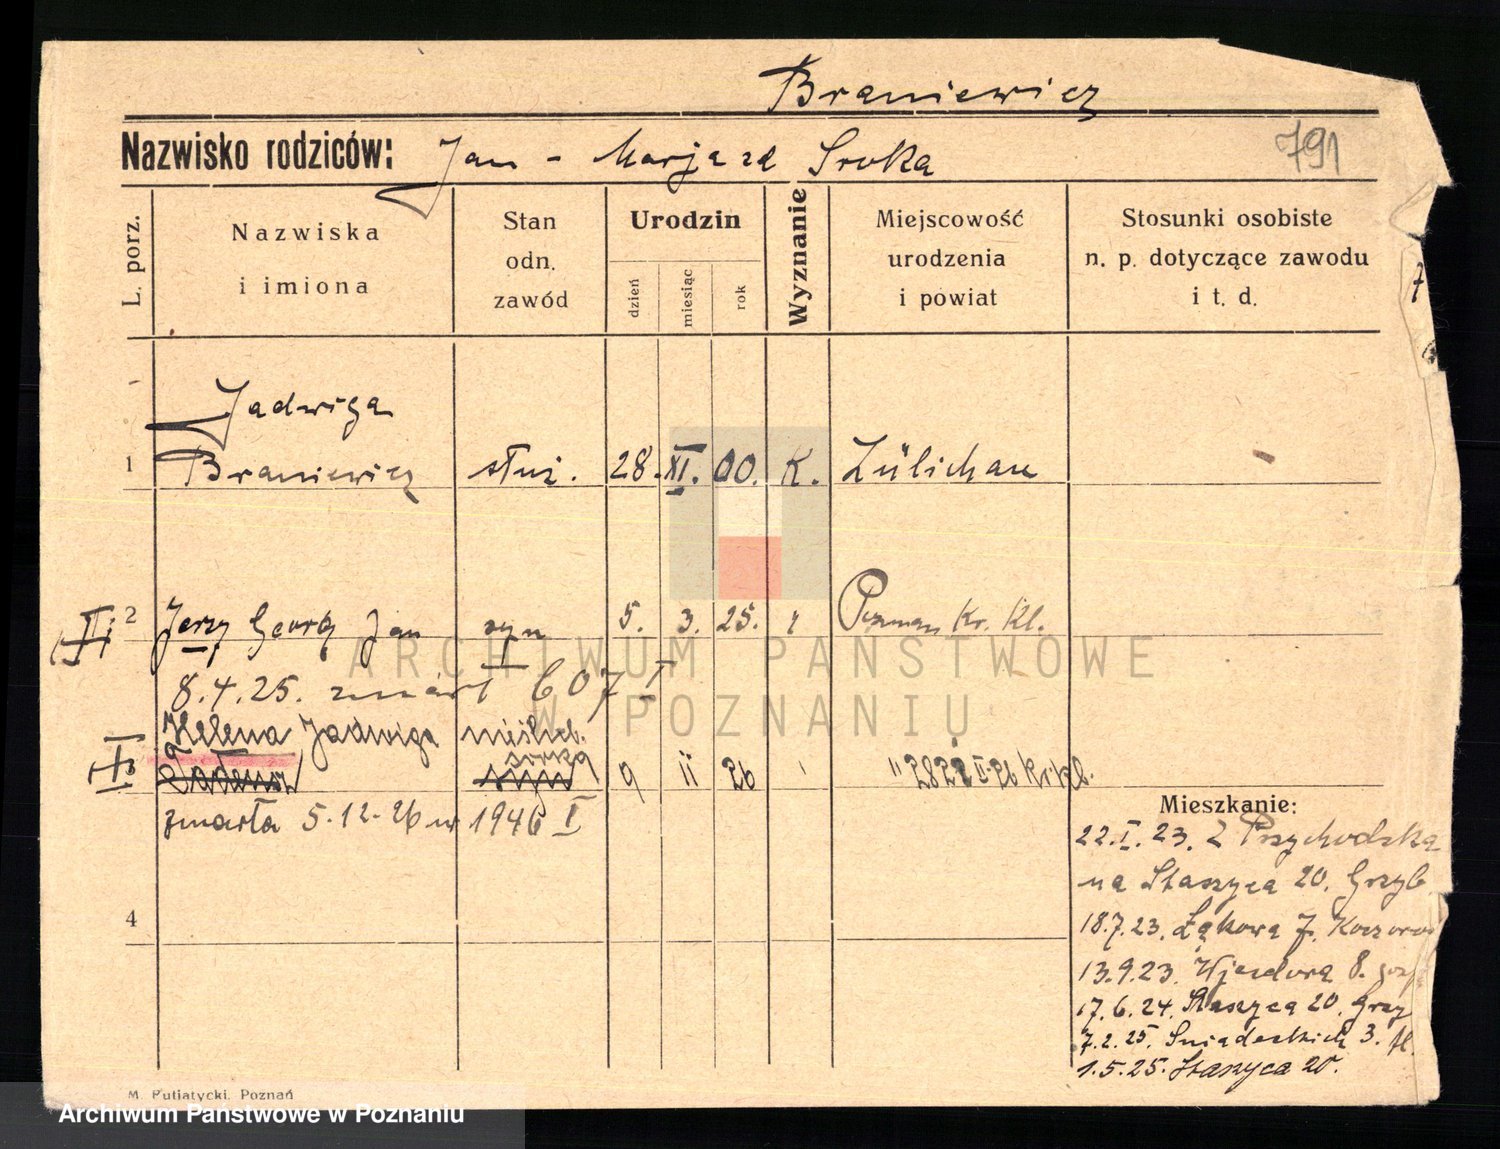 Braniewicz
Nazwisko rodziców: Jan - Marja zd Sroka
791
L. porz.
Nazwiska
i imiona
Stan
odn.
zawód
Urodzin
dzień
miesiąc
rok
Wyznanie
Miejscowość
urodzenia
i powiat
Stosunki osobiste
n. p. dotyczące zawodu
i t. d.
Jadwiga
1 Braniewicz służ. 28. XI. 00. K. Züllichau
2 Jerzy Georg Jan syn 5. 3. 25. Poznań Kr. Kl.
8.4.25. zmarł 607 I
Helena Jadwiga nieślub.
córka
3 Tadeusz syn 9 11 26 " 2821 II-26 Kr. Kl.
zmarła 5.12.26 nr 1946 I
4
Mieszkanie:
22.I.23. z Przychodzka
na Staszyca 20. Grzyb
18.7.23. Łąkowa 7. Koczorow
13.9.23. Wjazdowa 8. gosp
17.6.24. Staszyca 20. Grzy
7.2.25. Śniadeckich 3.
1.5.25. Staszyca 20.
M. Putiatycki. Poznań
ARCHIWUM PAŃSTWOWE
W POZNANIU
Archiwum Państwowe w Poznaniu